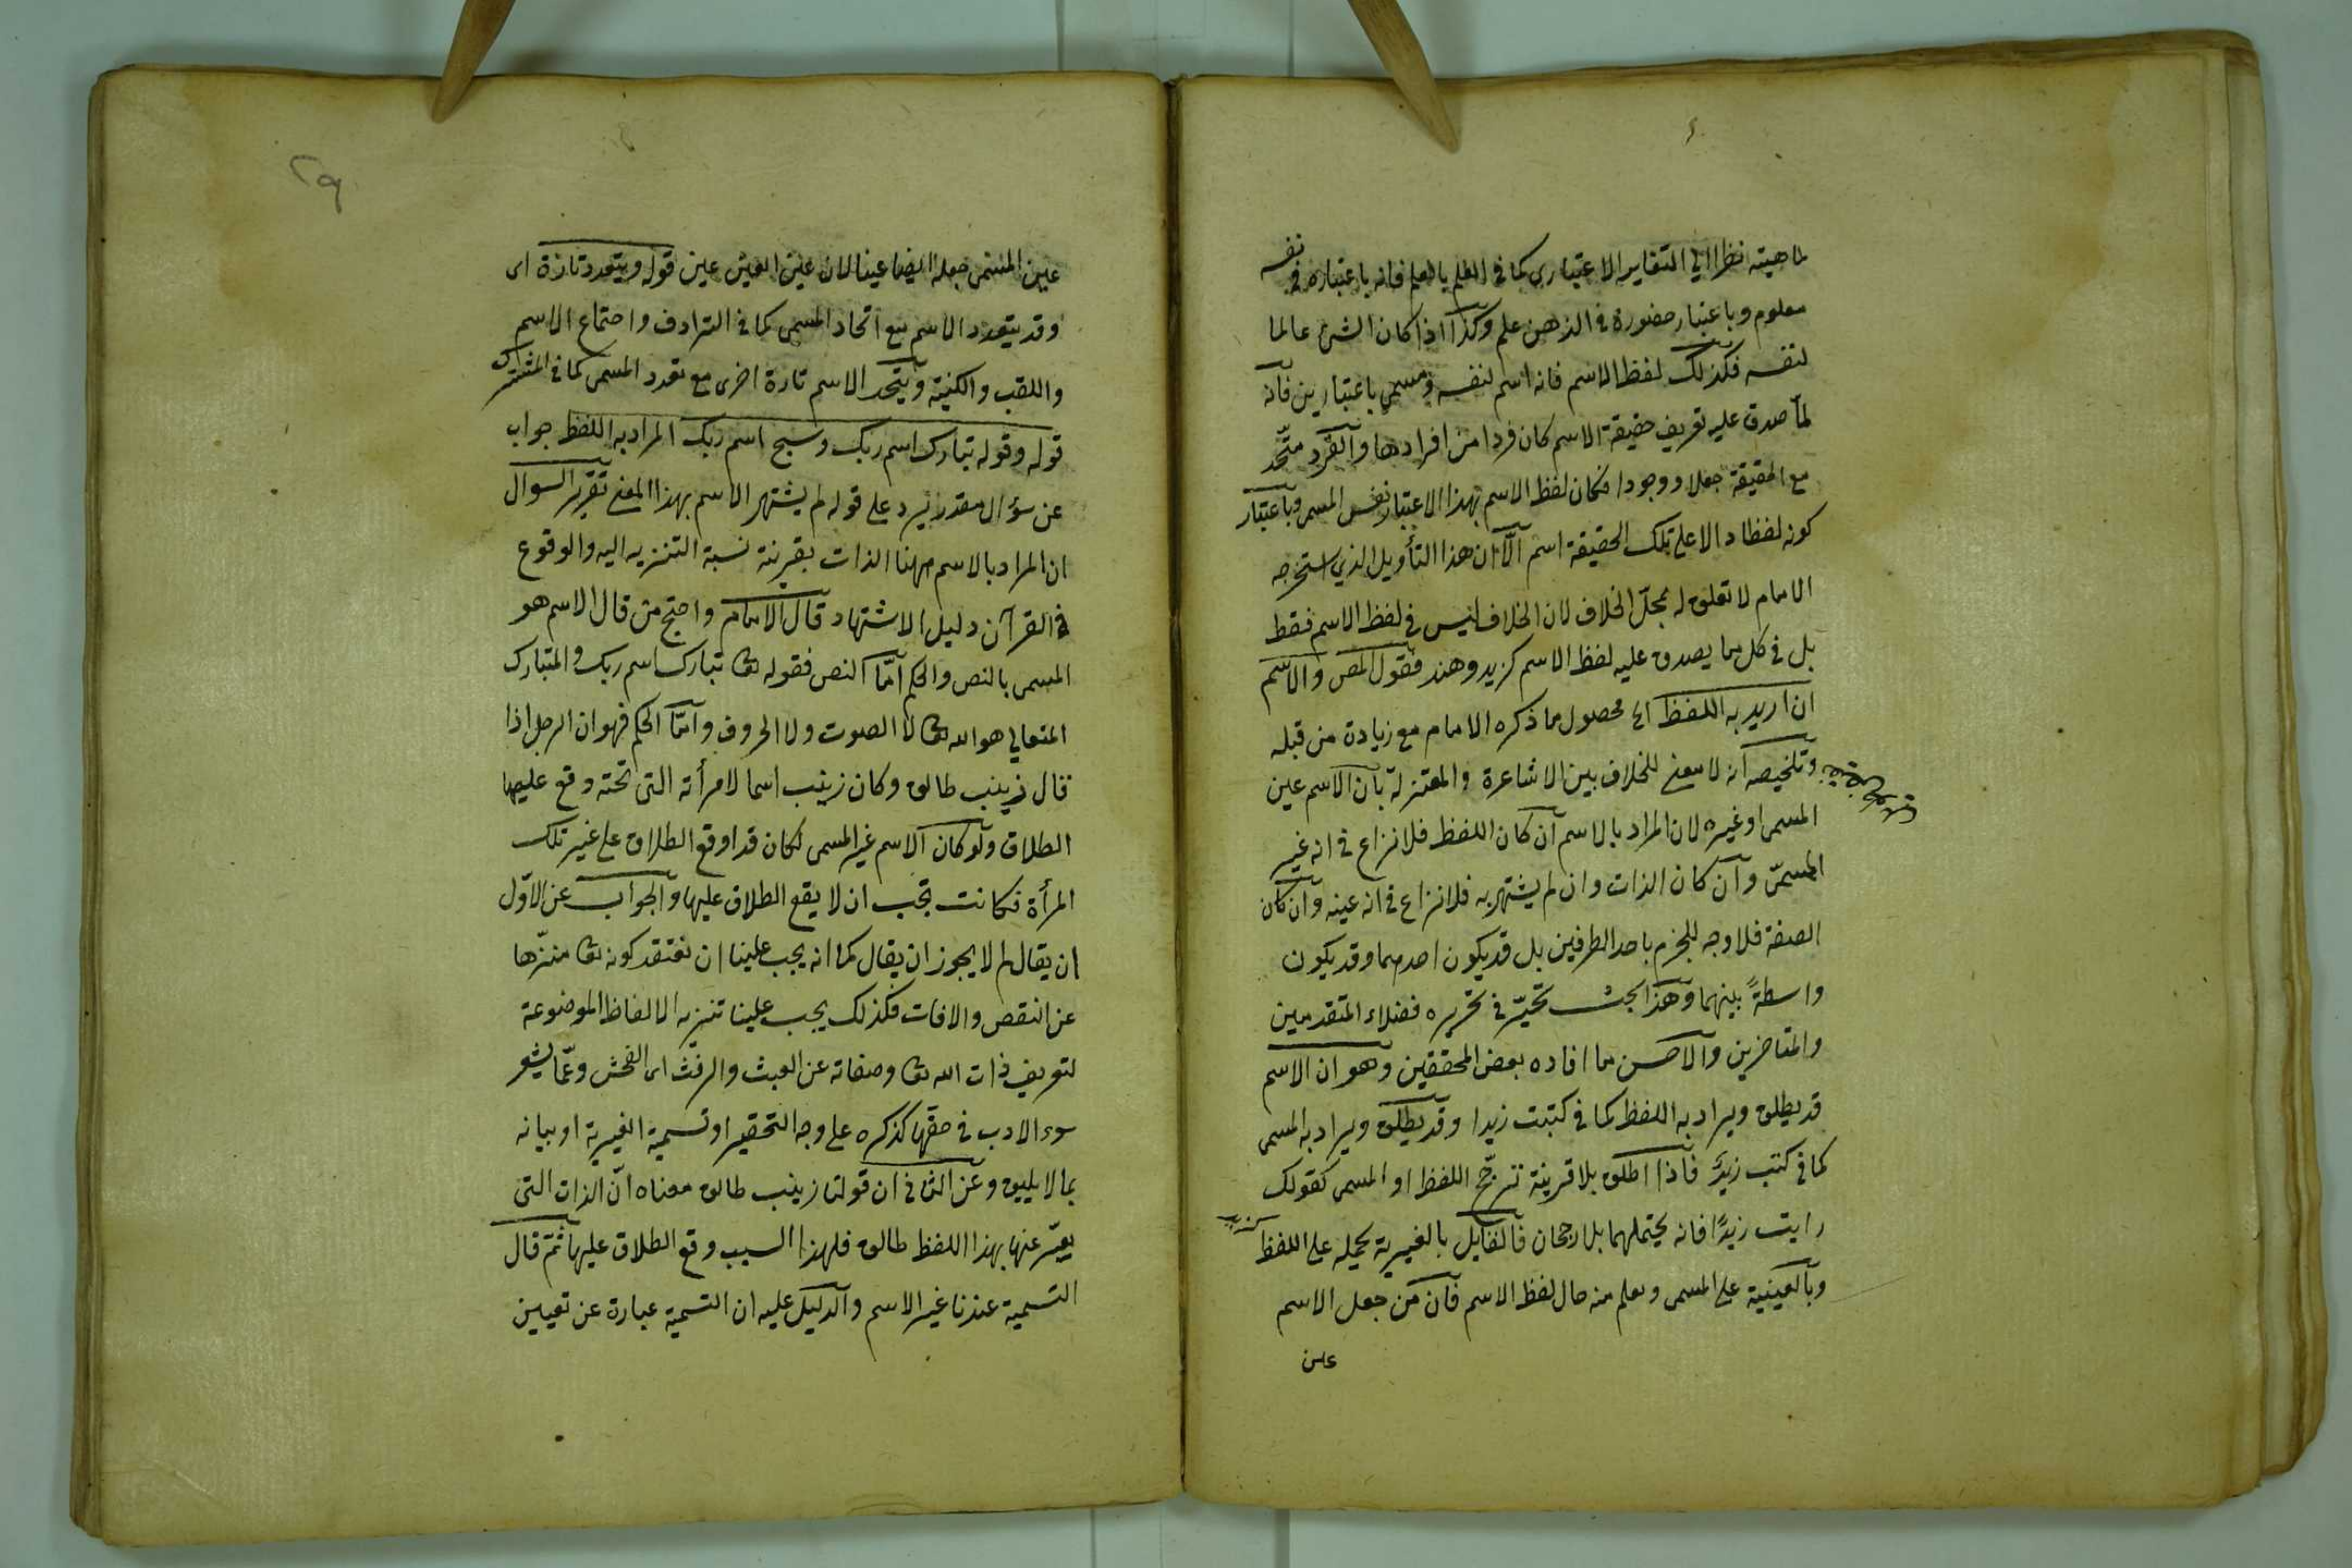 لماهيته نظرا الي التغاير الاعتباري كما في العلم بالعلم فانه باعتباره في نفسه
معلوم وباعتبار حضوره في الذهن علم وكذا اذا كان الشئ عالما
لنفسه فكذلك لفظ الاسم فانه اسم لنفسه ومسمى باعتبارين فانه
لما صدق عليه تعريف حقيقة الاسم كان فردا من افرادها والفرد متحد
مع الحقيقة جعلا ووجودا فكان لفظ الاسم بهذا الاعتبار نفس المسمى وباعتبار
كونه لفظا دالا على تلك الحقيقة اسم الا ان هذا التأويل الذي استخرجه
الامام لا تعلق له بمحل الخلاف لان الخلاف ليس في لفظ الاسم فقط
بل في كل ما يصدق عليه لفظ الاسم كزيد وهند فقول المص والاسم
ان اريد به اللفظ الى محصول ما ذكره الامام مع زيادة من قبله
وتلخيصه انه لا معنى للخلاف بين الاشاعرة والمعتزلة بان الاسم عين
المسمى او غيره لان المراد بالاسم ان كان اللفظ فلا نزاع في انه غير
المسمّى وان كان الذات وان لم يشتهر به فلا نزاع في انه عينه وان كان
الصفة فلا وجه للجزم باحد الطرفين بل قد يكون احدهما وقد يكون
واسطةً بينهما وهذا بحث تحيّر في تحريره فضلاء المتقدمين
والمتاخرين والاحسن ما افاده بعض المحققين وهو ان الاسم
قد يطلق ويراد به اللفظ كما في كتبت زيدا وقد يطلق ويراد به المسمى
كما في كتب زيدٌ فاذا اطلق بلا قرينة ترجّح اللفظ او المسمى كقولك
رايت زيدًا فانه يحتملهما بلا رجحان فالقايل بالغيرية يحمله على اللفظ
وبالعينية على المسمى وعلم منه حال لفظ الاسم فان من جعل الاسم
عين
٢٩
عين المسمى جعله ايضا عينا لان عين العين عين قوله ويتعدد تارة اى
وقد يتعدد الاسم مع اتحاد المسمى كما في الترادف واجتماع الاسم
واللقب والكنية ويتحد الاسم تارة اخرى مع تعدد المسمى كما في المشترك
قوله وقوله تبارك اسم ربك وسبح اسم ربك المراد به اللفظ جواب
عن سؤال مقدر يرد على قوله لم يشتهر الاسم بهذا المعنى تقرير السوال
ان المراد بالاسم ههنا الذات بقرينة نسبة التنزيه اليه والوقوع
في القرآن دليل الاشتهار قال الامام واحتج من قال الاسم هو
المسمى بالنص والحكم امّا النص فقوله تعا تبارك اسم ربك والمتبارك
المتعالي هو الله تعا لا الصوت ولا الحروف وامّا الحكم فهو ان الرجل اذا
قال زينب طالق وكان زينب اسما لامرأته التى تحته وقع عليها
الطلاق ولو كان الاسم غير المسمى لكان قد اوقع الطلاق على غير تلك
المرأة فكانت يجب ان لا يقع الطلاق عليها والجواب عن الاوّل
ان يقال لم لا يجوز ان يقال كما انه يجب علينا ان نعتقد كونه تعا منزّها
عن النقص والافات فكذلك يجب علينا تنزيه الالفاظ الموضوعة
لتعريف ذات الله تعا وصفاته عن العبث والرفث اى الفحش وعمّا يشعر
سوء الادب في حقها كذكره على وجه التحقير او تسمية الغير به او بيانه
بما لا يليق وعن الثاني ان قولنا زينب طالق معناه انّ الذات التى
يعبّر عنها بهذا اللفظ طالق فلهذا السبب وقع الطلاق عليها ثم قال
التسمية عندنا غير الاسم والدليل عليه ان التسمية عبارة عن تعيين